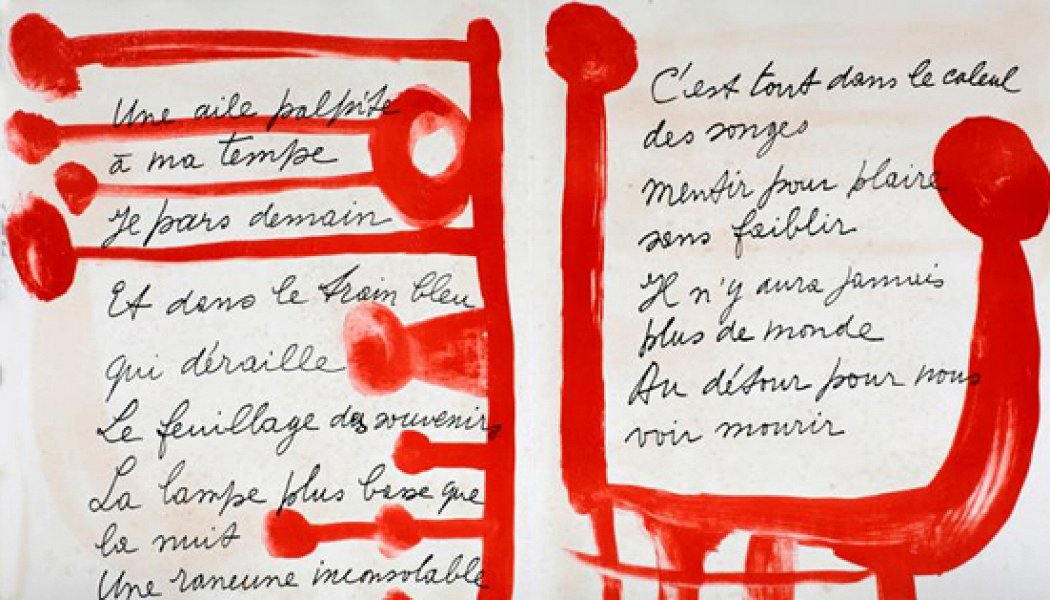 Une aile palpite
à ma tempe
Je pars demain
Et dans le train bleu
qui déraille
Le feuillage des souvenirs
La lampe plus basse que
la nuit
Une rancune inconsolable
C'est tout dans le calcul
des songes
mentir pour plaire
sans faiblir
Il n'y aura jamais
plus de monde
Au détour pour nous
voir mourir